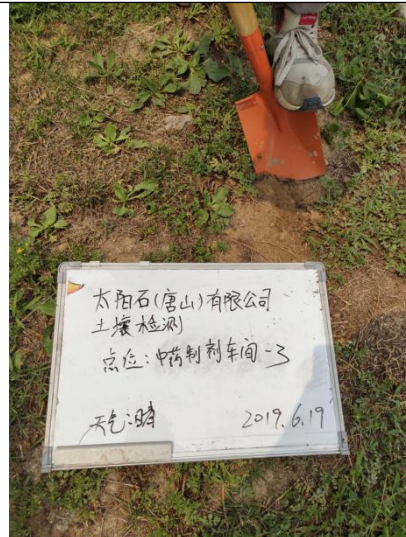 太阳石(唐山)有限公司
土壤检测
点位:中药制剂车间-3
天气:晴 2019.6.19